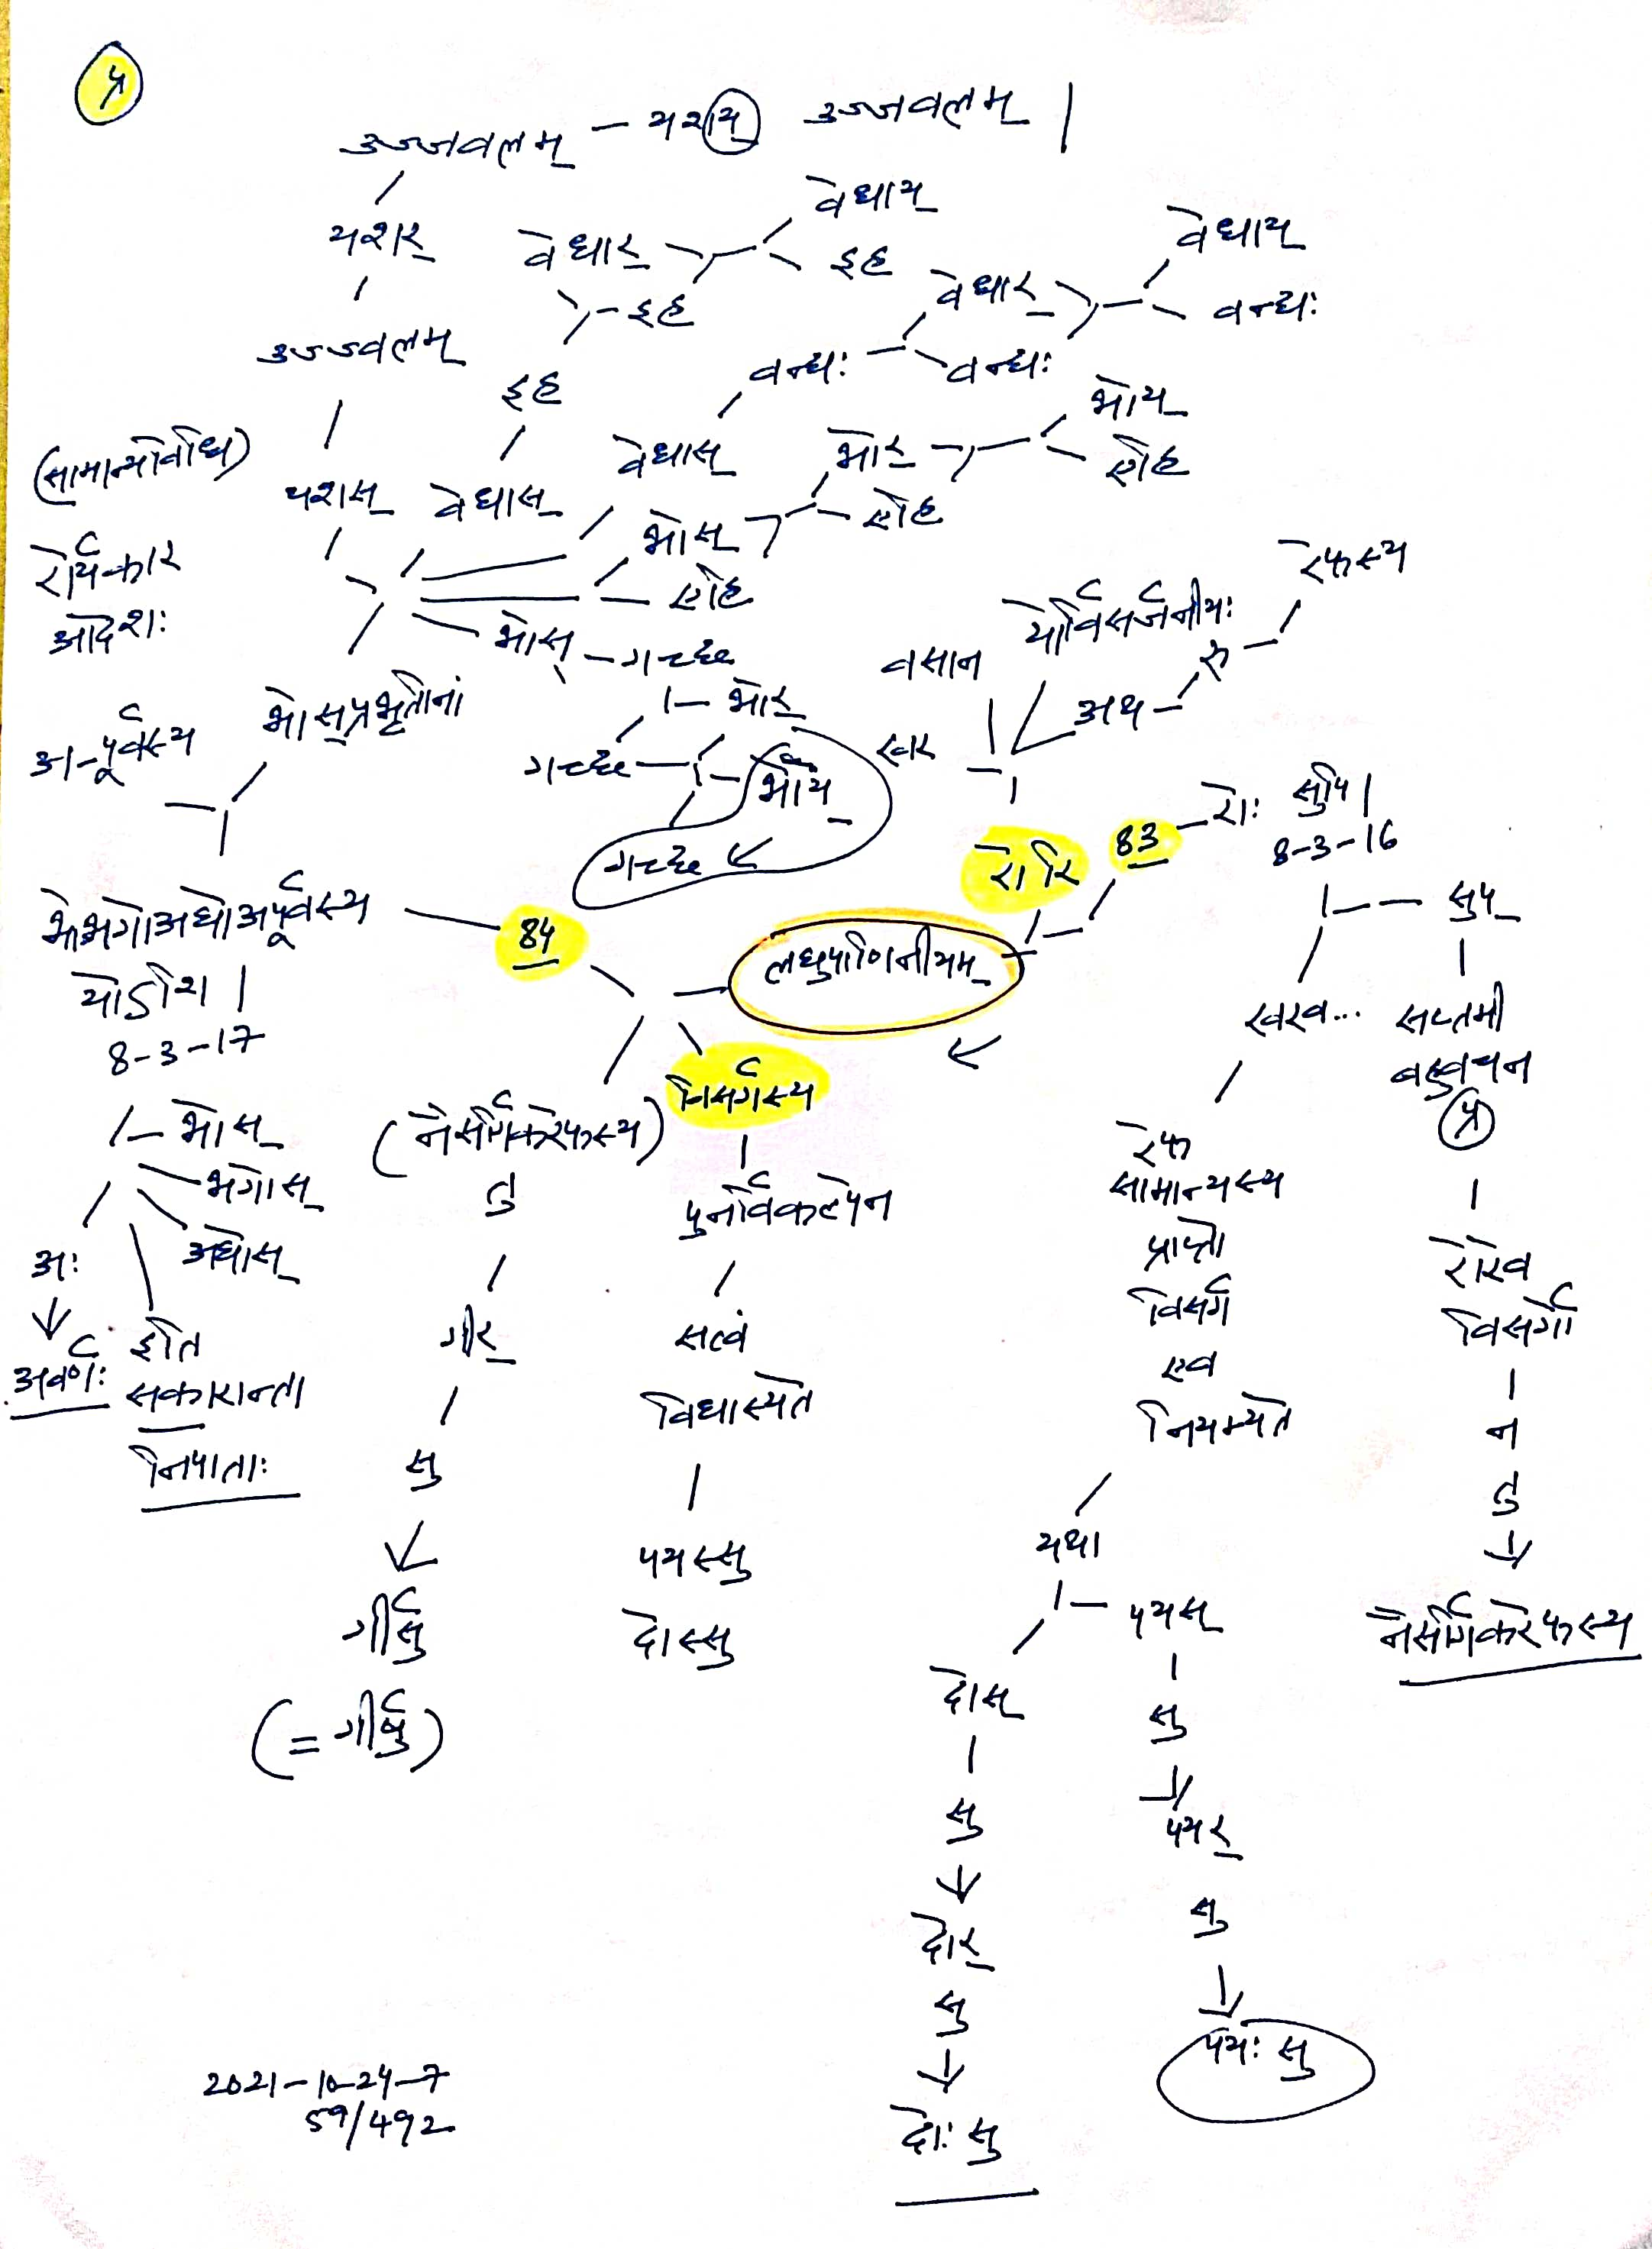 प्र
उज्जवलम् – यशाय् उज्जवलम् |
यशार्
उज्ज्वलम्
यशास्
वेधार्
इह
वेधाय्
इह
इह
वेधास्
वेधार्
वेधाय्
वन्धः
वन्धः
वन्धः
वेधास्
भोस्
एहि
भोर्
एहि
भोय्
एहि
(सामान्यविधि)
रोर्यकार
आदेशः
भोस् – गच्छ
भोर्
गच्छ
भोय्
गच्छ
अ-पूर्वस्य
भोस्प्रभृतीनां
भोभगोअघोअपूर्वस्य
योऽशि |
8-3-17
84
भोस्
भगोस्
अघोस्
अः
अवर्णः
इति
सकारान्ता
निपाताः
लघुपाणिनीयम्
(नैसर्गिकरेफस्य)
तु
गीर्
सु
गीर्सु
(= गीर्षु)
विसर्गस्य
पुनर्विकल्पेन
सत्वं
विधास्यते
पयस्सु
दोस्सु
रोरि
वसान
खर्
र्योर्विसर्जनीयः
अथ
रु
रेफस्य
83
रोः सुपि |
8-3-16
सुप्
सप्तमी
बहुवचन
प्र
रोरेव
विसर्गो
न
तु
नैसर्गिकरेफस्य
खरव...
रेफ
सामान्यस्य
प्राप्तो
विसर्ग
एव
नियम्यते
यथा
पयस्
सु
पयर्
सु
पयः सु
दोस्
सु
दोर्
सु
दोः सु
2021-10-24-7
59/492